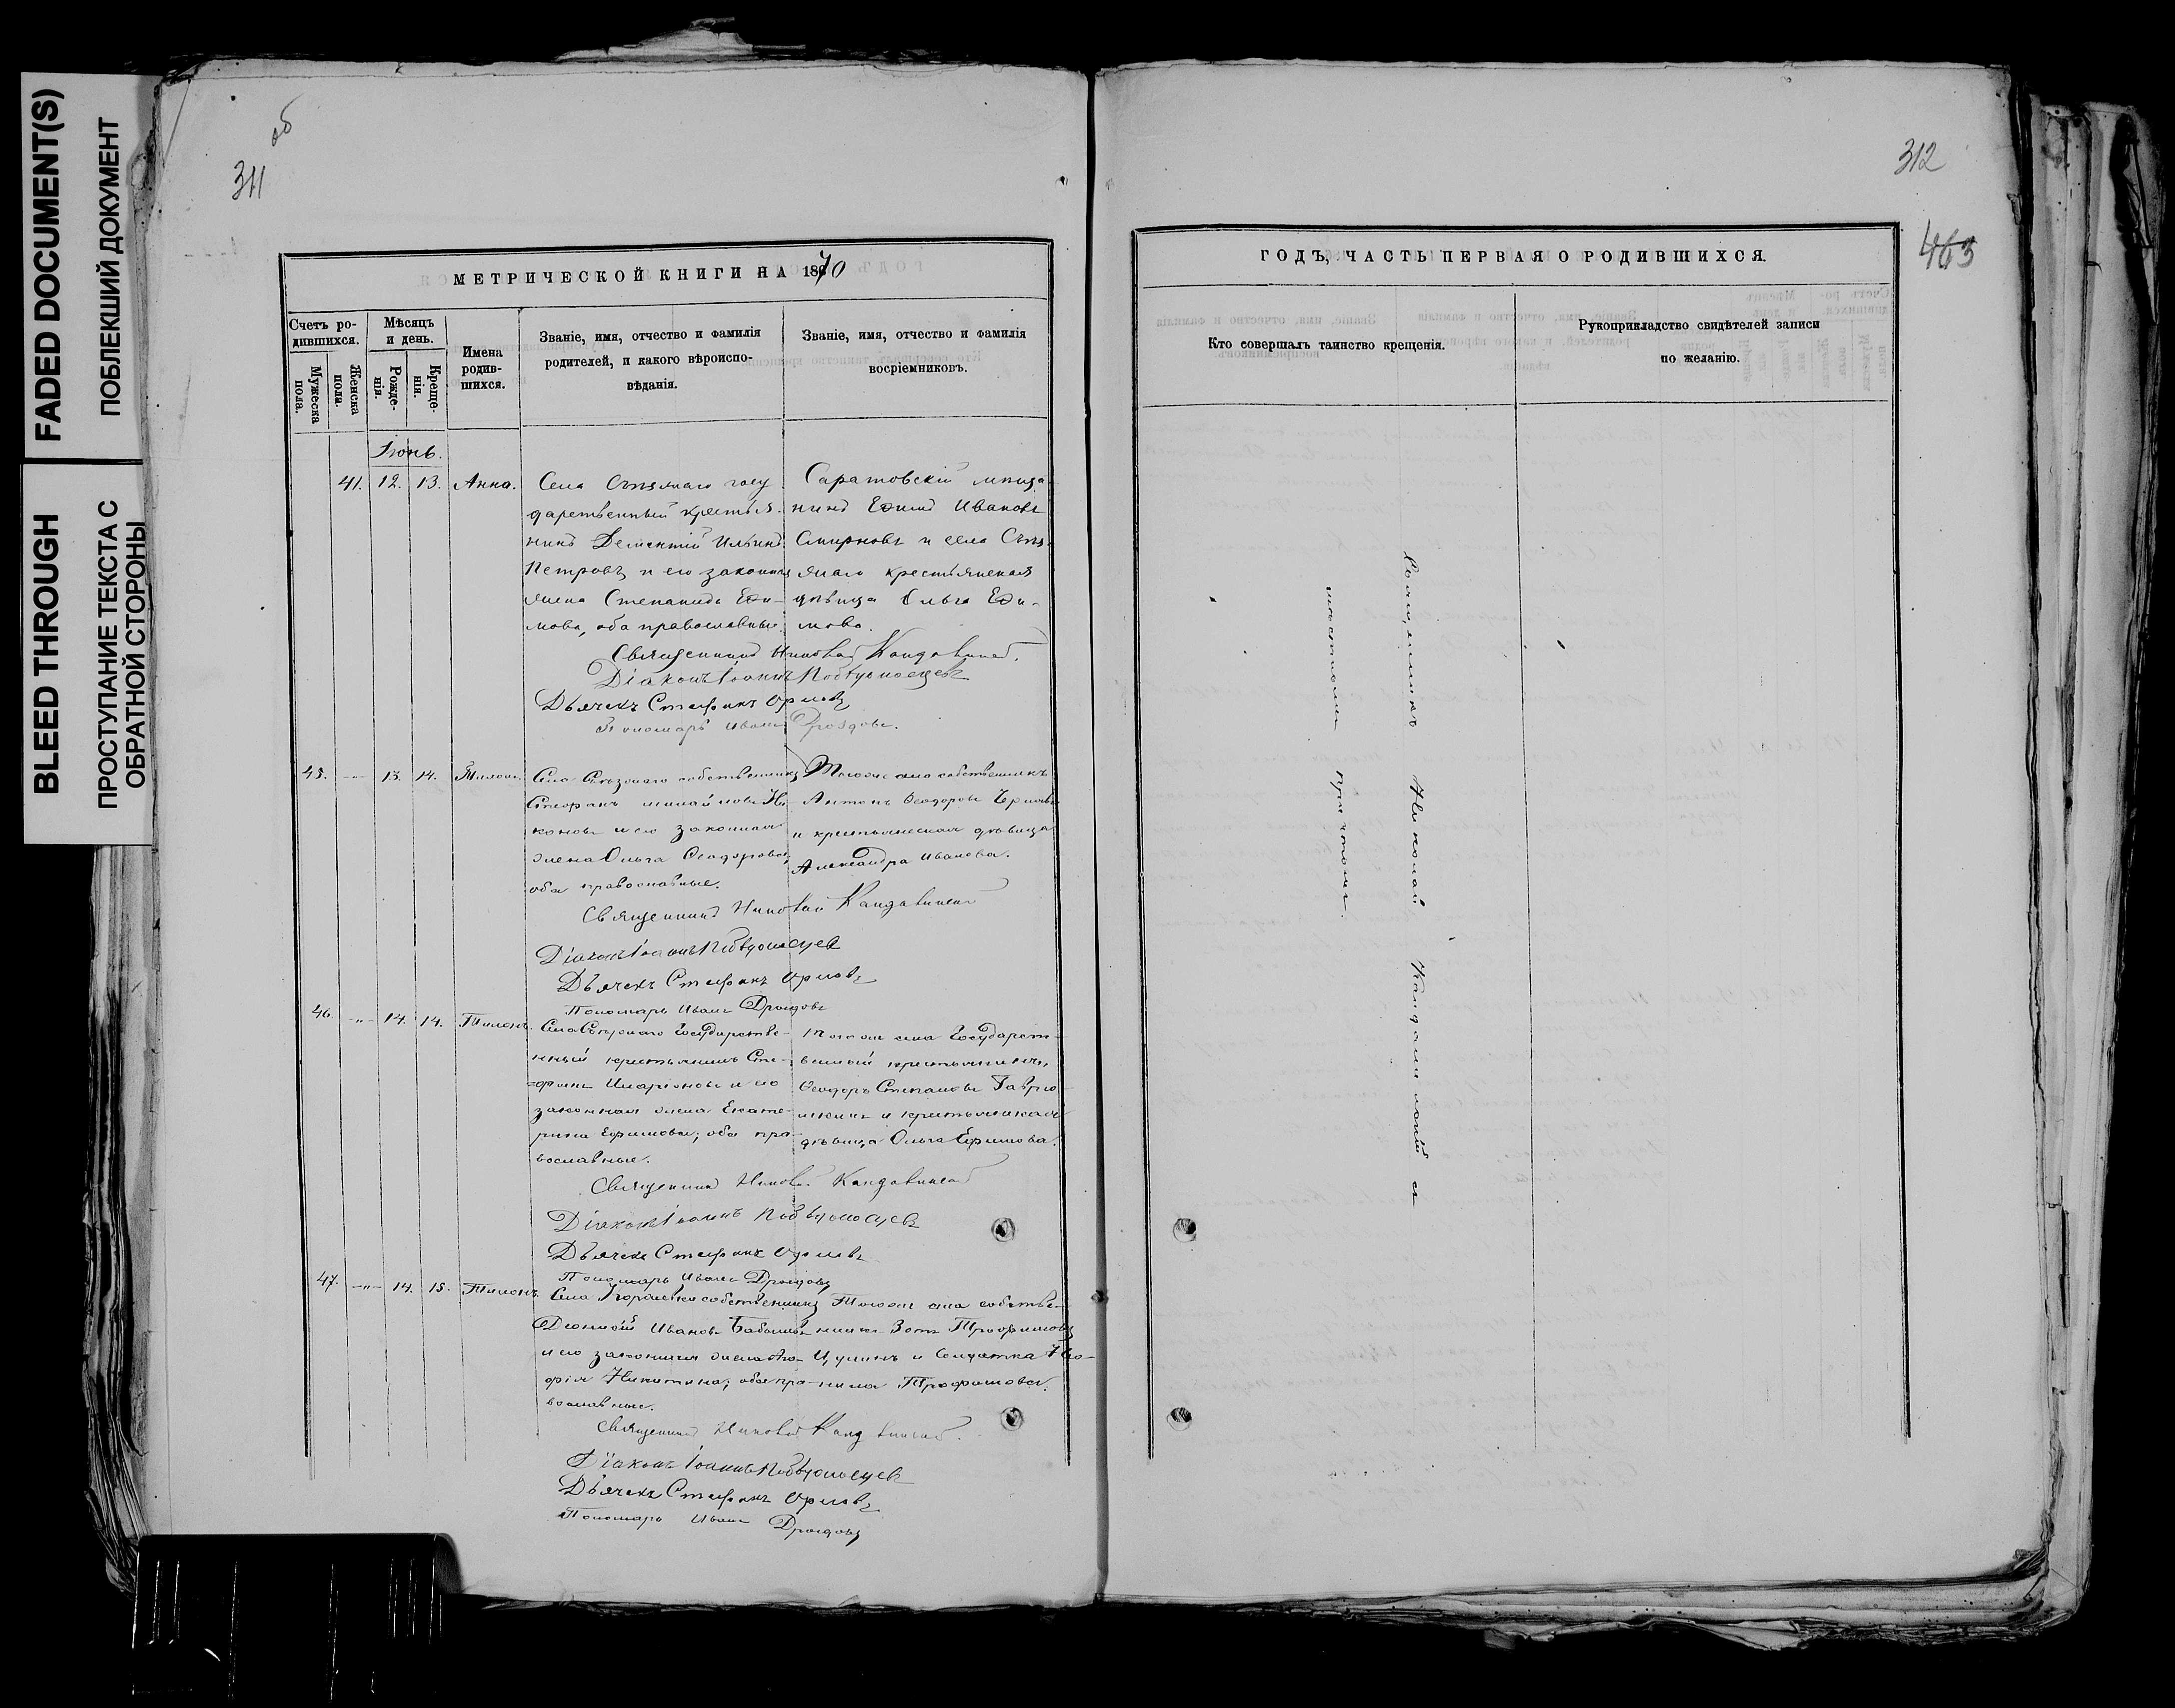 FADED DOCUMENT(S)
ПОБЛЕКШИЙ ДОКУМЕНТ
BLEED THROUGH
ПРОСТУПАНИЕ ТЕКСТА С
ОБРАТНОЙ СТОРОНЫ
об
311
МЕТРИЧЕСКОЙ КНИГИ НА 1870
Счетъ ро-
дившихся.
Мужеска
пола.
Женска
пола.
Мѣсяцъ
и день.
Рожде-
нія.
Креще-
нія.
Имена
родив-
шихся.
Званіе, имя, отчество и фамилія
родителей, и какого вѣроиспо-
вѣданія.
Званіе, имя, отчество и фамилія
восріемниковъ.
Іюнь.
41. 12. 13. Анна.
Села госу
дарственный крестья-
нинъ Ильинъ
Петровъ и его законная
жена Степанида Ефи-
мова, оба православные.
Саратовскій мѣща
нинъ Ефимъ Ивановъ
Смирновъ и села
крестьянская
дѣвица Ольга Ефи-
мова.
Священникъ Николай
Діаконъ Іоаннъ Побѣдоносцевъ
Дьячекъ Стефанъ Орловъ
Пономарь Иванъ Дроздовъ.
45. 13. 14. Тихонъ.
Село собственникъ
Стефанъ Ни-
коновъ и его законная
жена Ольга Ѳеодорова,
оба православные.
Тогоже села собственникъ
Антонъ Ѳеодоровъ
и крестьянская дѣвица
Александра Иванова.
Священникъ Николай
Діаконъ Іоаннъ Побѣдоносцевъ
Дьячекъ Стефанъ Орловъ
Пономарь Иванъ Дроздовъ
46. -„- 14. 14. Тихонъ.
Села Государстве-
нный крестьянинъ Сте-
фанъ Иларіоновъ и его
законная жена Екате-
рина Ефимова, оба пра-
вославные.
Тогоже села Государст-
венный крестьянинъ
Ѳеодоръ Степановъ Гаврю-
шинъ и крестьянская
дѣвица Ольга Ефимова.
Священникъ Николай
Діаконъ Іоаннъ Побѣдоносцевъ
Дьячекъ Стефанъ Орловъ
Пономарь Иванъ Дроздовъ
47. -„- 14. 15. Тихонъ.
Села собственникъ
Діонисій Ивановъ
и его законная жена Со-
фія Никитина, оба пра-
вославные.
Тогоже села собстве-
нникъ Зотъ Трофимовъ
и солдатка
Трофимова.
Священникъ Николай
Діаконъ Іоаннъ Побѣдоносцевъ
Дьячекъ Стефанъ Орловъ
Пономарь Иванъ Дроздовъ
312
463
ГОДЪ, ЧАСТЬ ПЕРВАЯ О РОДИВШИХСЯ.
Кто совершалъ таинство крещенія.
Рукоприкладство свидѣтелей записи
по желанію.
Священникъ Николай и
причтомъ.